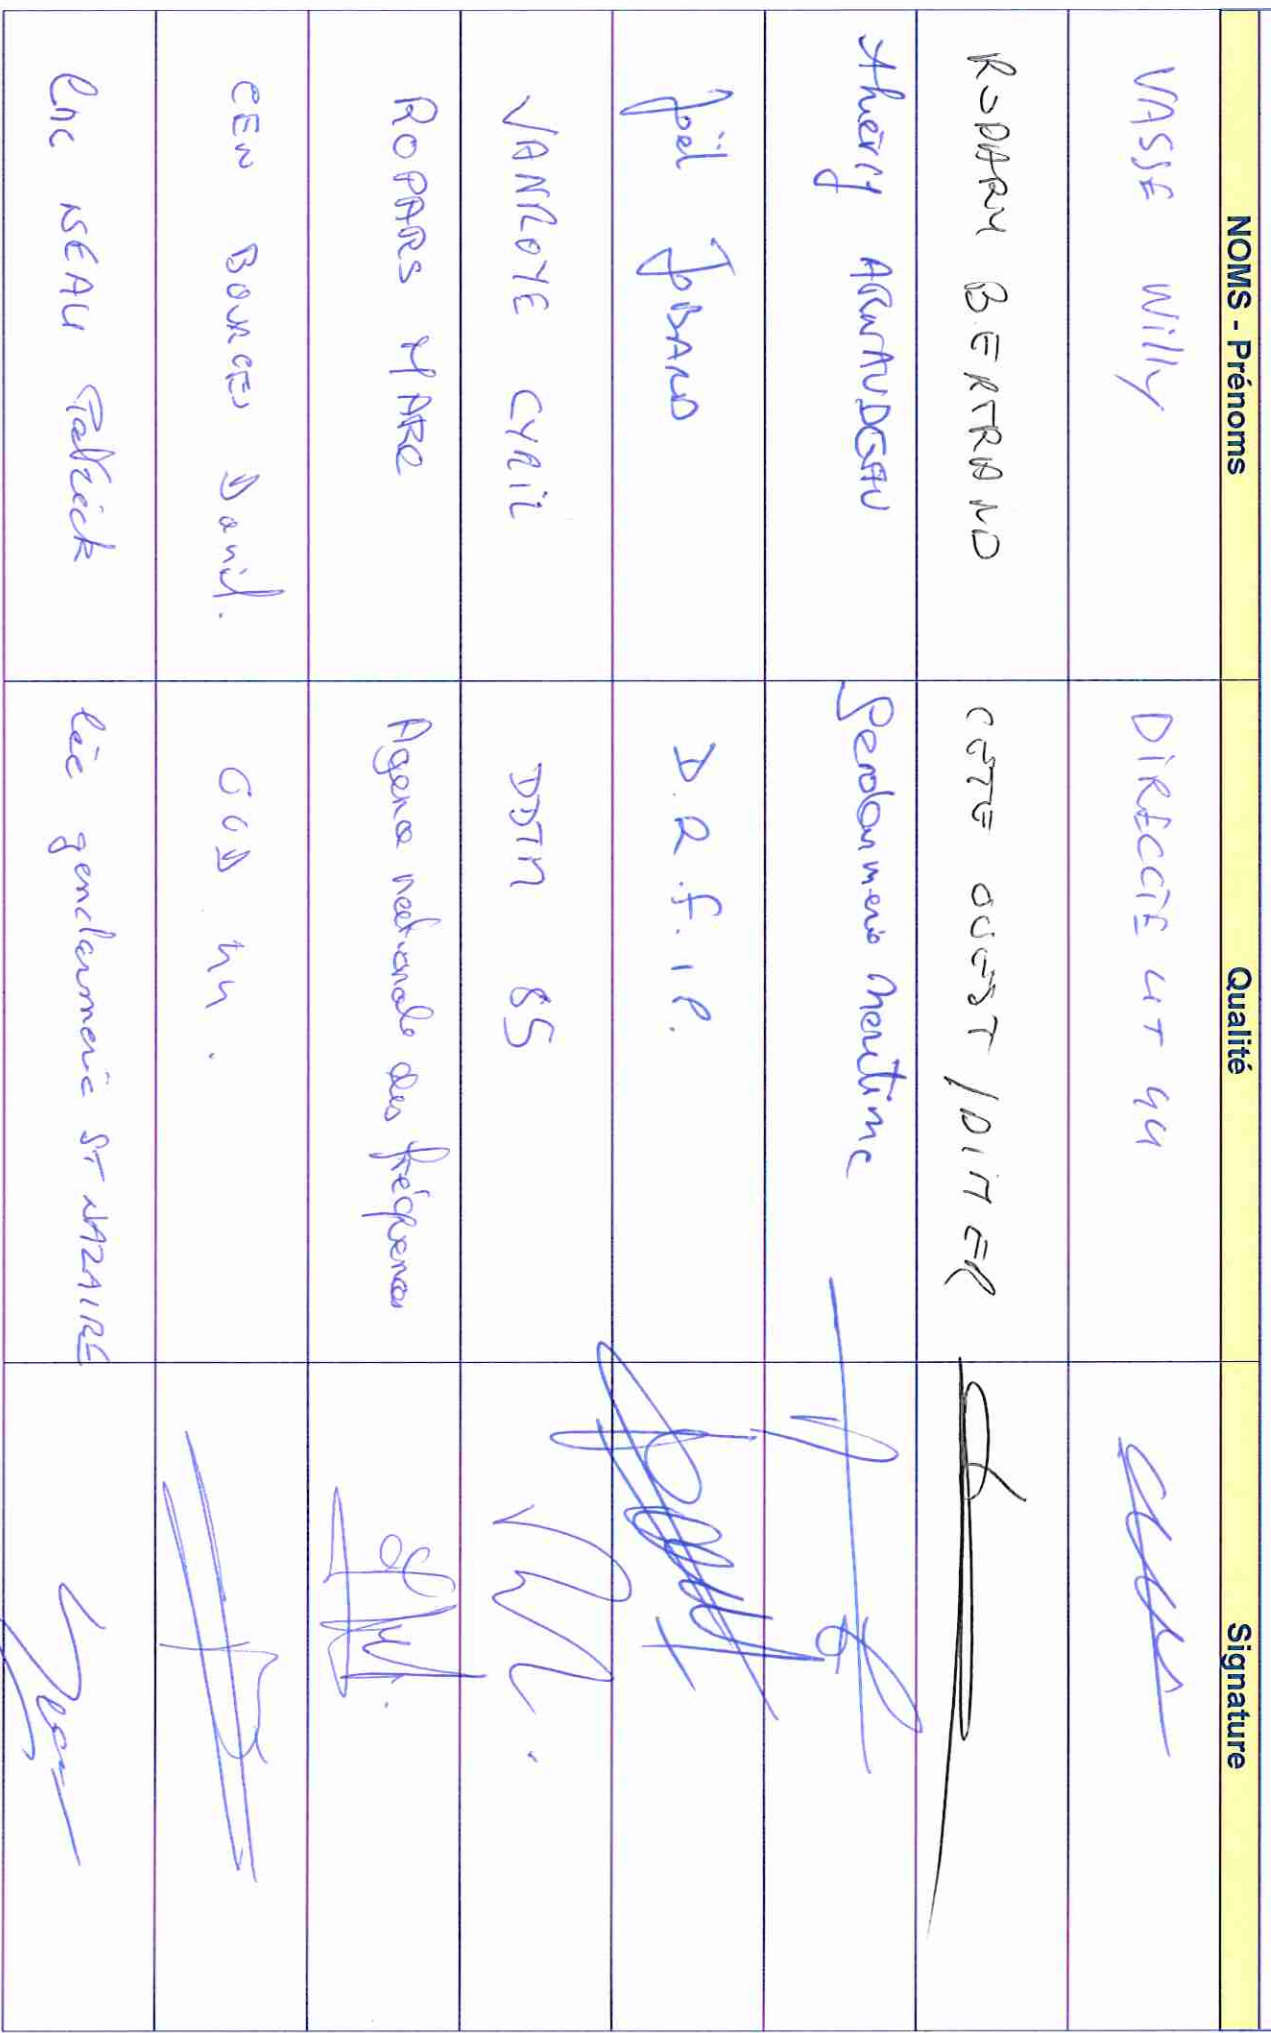 NOMS - Prénoms Qualité Signature
VASSE Willy DIRECCTE UT 44
RODARY BERTRAND COTE OUEST / DIMER
Thierry ARNAUDEAU Gendarmerie Maritime
Joël JOBARD D.R.F.I.P.
VANROYE CYRIL DDTM 85
ROPARS MARC Agence nationale des fréquences
CEN BOURGES Daniel.
Patrick gendarmerie ST NAZAIRE